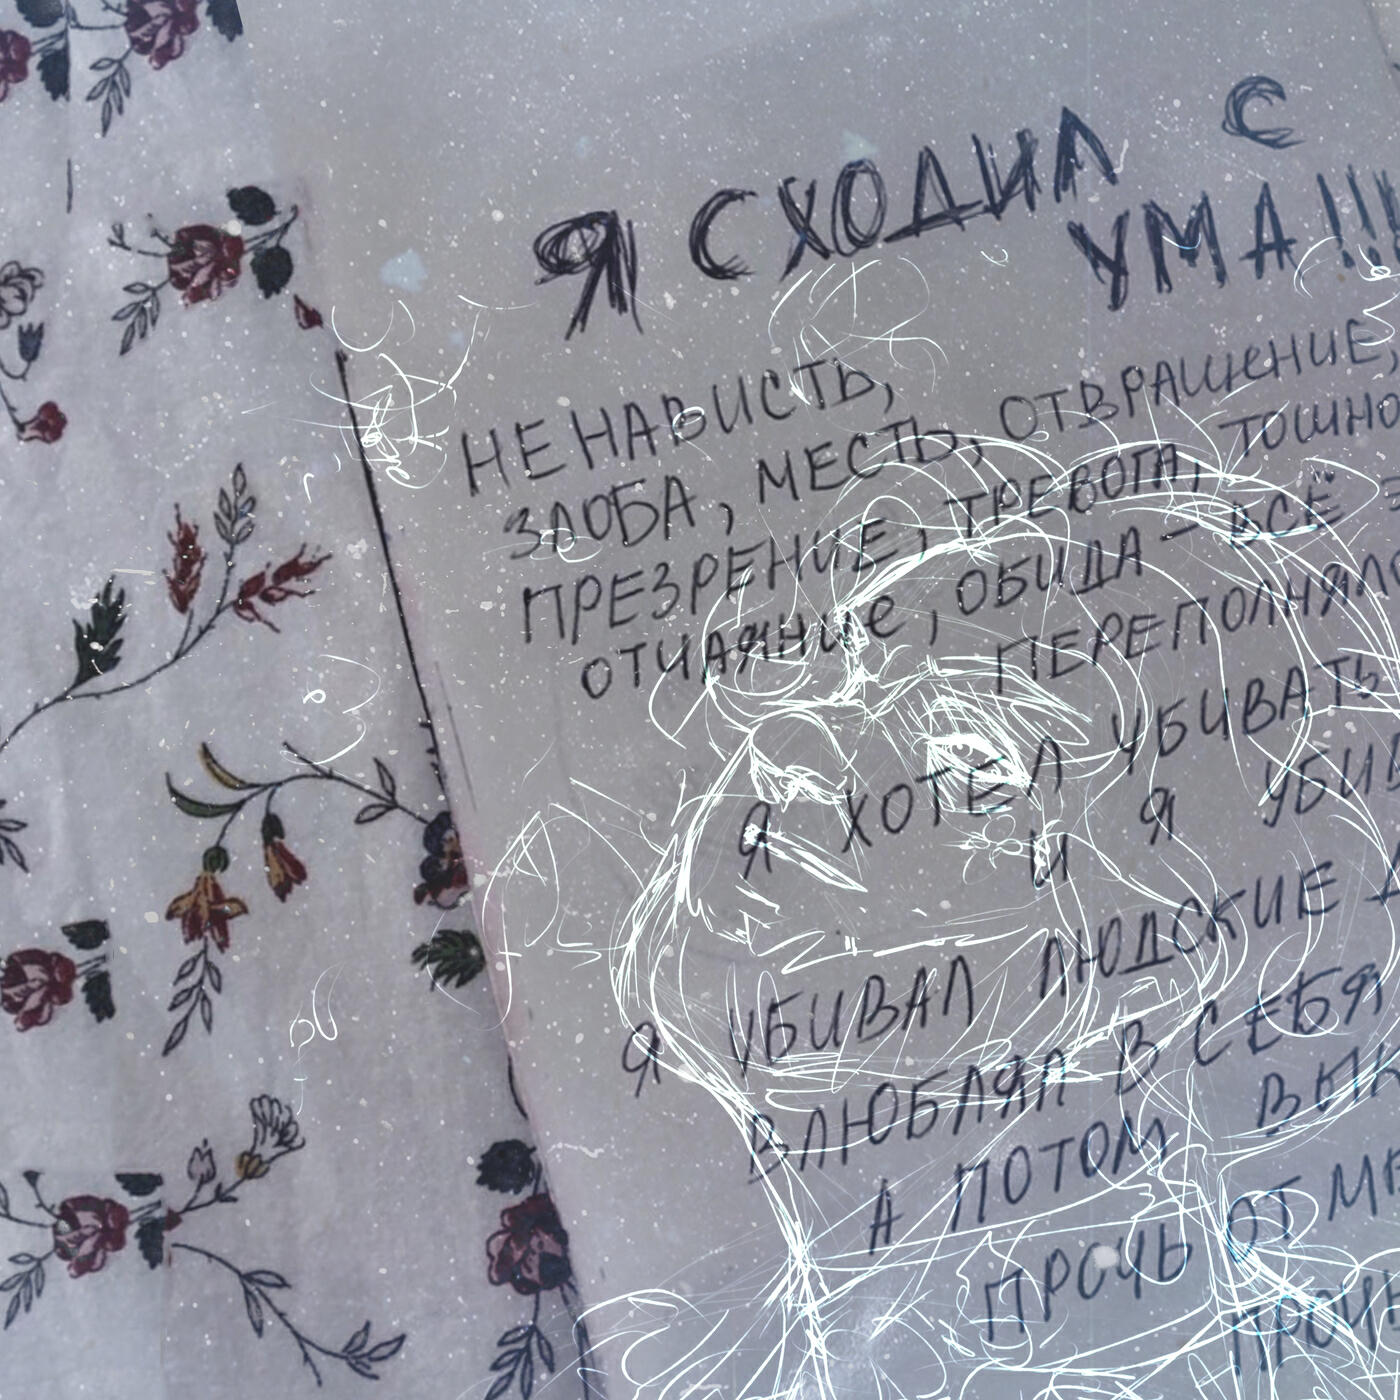 Я СХОДИЛ С
УМА!!!
НЕНАВИСТЬ,
ЗЛОБА, МЕСТЬ, ОТВРАЩЕНИЕ,
ПРЕЗРЕНИЕ, ТРЕВОГА,
ОТЧАЯНИЕ, ОБИДА — ВСЁ
ПЕРЕПОЛНЯЛО
Я ХОТЕЛ УБИВАТЬ
И Я
Я УБИВАЛ ЛЮДСКИЕ
ВЛЮБЛЯЛ В СЕБЯ
А ПОТОМ
ПРОЧЬ ОТ